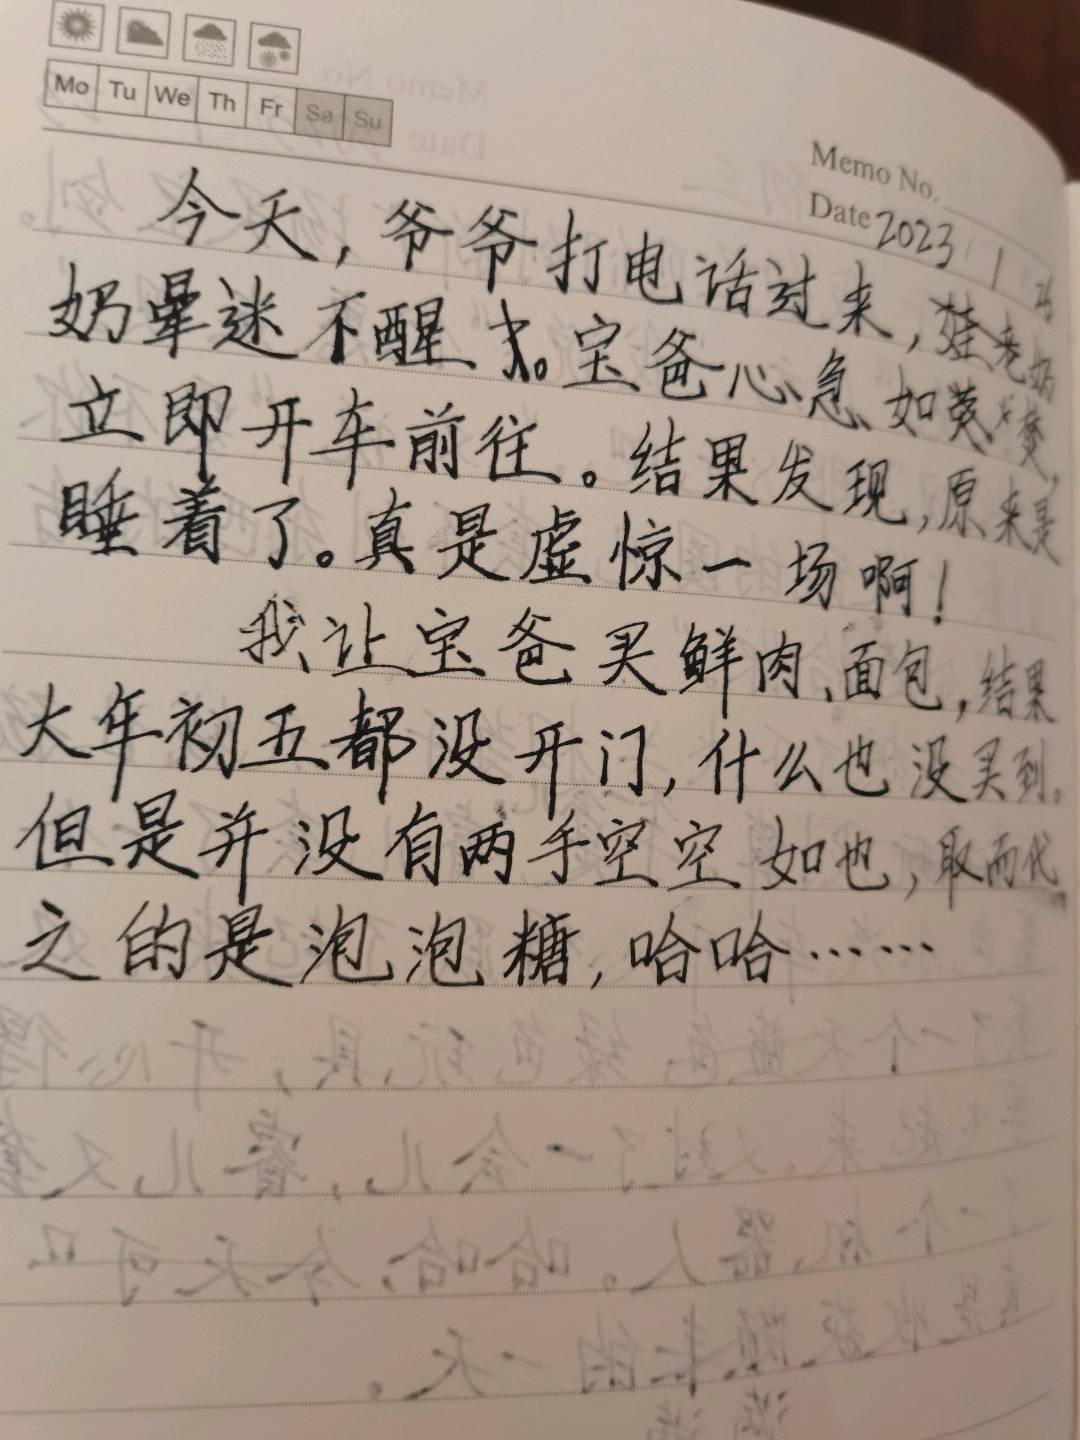 Mo Tu We Th Fr Sa Su
Memo No.
Date 2023 1
今天，爷爷打电话过来，老奶
奶晕迷不醒了。宝爸心急如焚，
立即开车前往。结果发现，原来是
睡着了。真是虚惊一场啊！
我让宝爸买鲜肉、面包，结果
大年初五都没开门，什么也没买到。
但是并没有两手空空如也，取而代
之的是泡泡糖，哈哈……